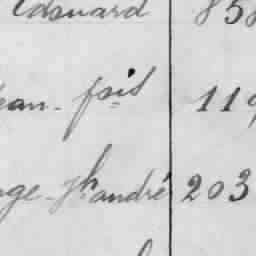 Edouard 858
ean - fois 119
ge - Jh andré 203